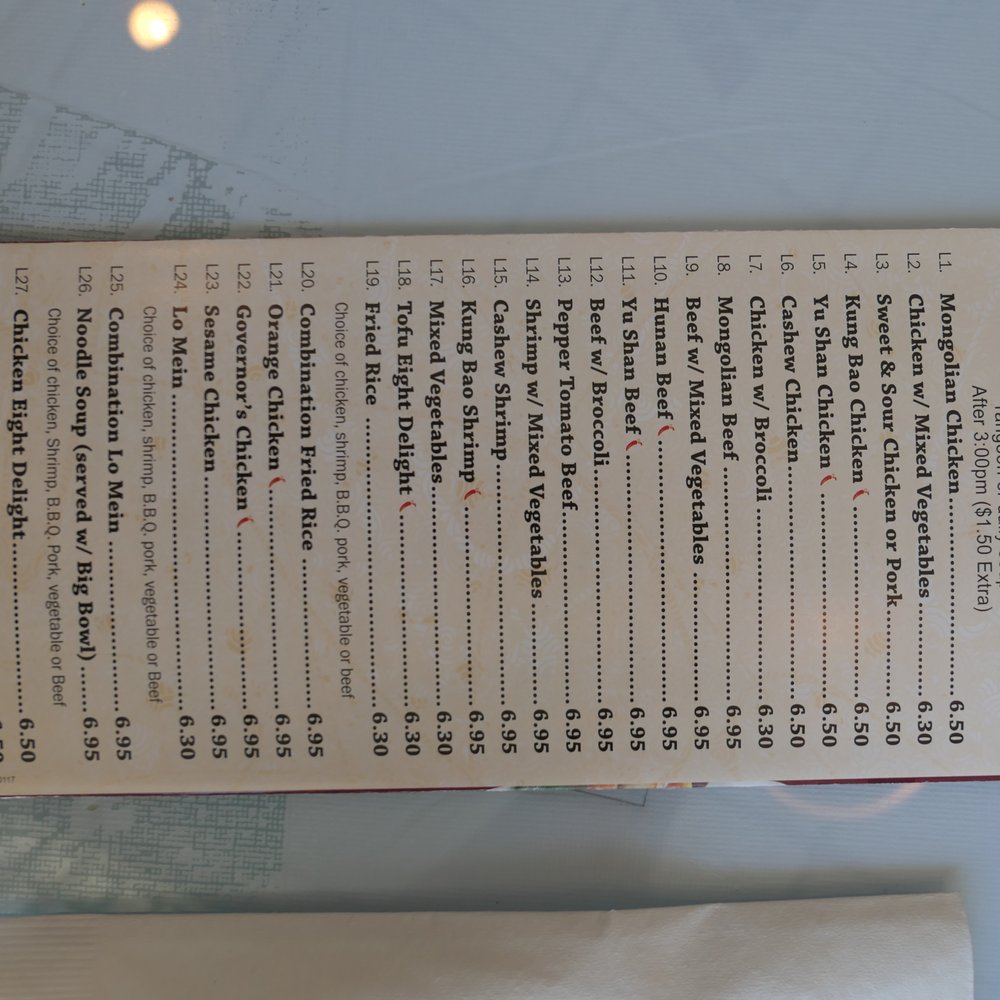 After 3:00pm ($1.50 Extra)
L1. Mongolian Chicken 6.50
L2. Chicken w/ Mixed Vegetables 6.30
L3. Sweet & Sour Chicken or Pork 6.50
L4. Kung Bao Chicken 6.50
L5. Yu Shan Chicken 6.50
L6. Cashew Chicken 6.50
L7. Chicken w/ Broccoli 6.30
L8. Mongolian Beef 6.95
L9. Beef w/ Mixed Vegetables 6.95
L10. Hunan Beef 6.95
L11. Yu Shan Beef 6.95
L12. Beef w/ Broccoli 6.95
L13. Pepper Tomato Beef 6.95
L14. Shrimp w/ Mixed Vegetables 6.95
L15. Cashew Shrimp 6.95
L16. Kung Bao Shrimp 6.95
L17. Mixed Vegetables 6.30
L18. Tofu Eight Delight 6.30
L19. Fried Rice 6.30
Choice of chicken, shrimp, B.B.Q. pork, vegetable or beef
L20. Combination Fried Rice 6.95
L21. Orange Chicken 6.95
L22. Governor's Chicken 6.95
L23. Sesame Chicken 6.95
L24. Lo Mein 6.30
Choice of chicken, shrimp, B.B.Q. pork, vegetable or Beef
L25. Combination Lo Mein 6.95
L26. Noodle Soup (served w/ Big Bowl) 6.95
Choice of chicken, Shrimp, B.B.Q. Pork, vegetable or Beef
L27. Chicken Eight Delight 6.50